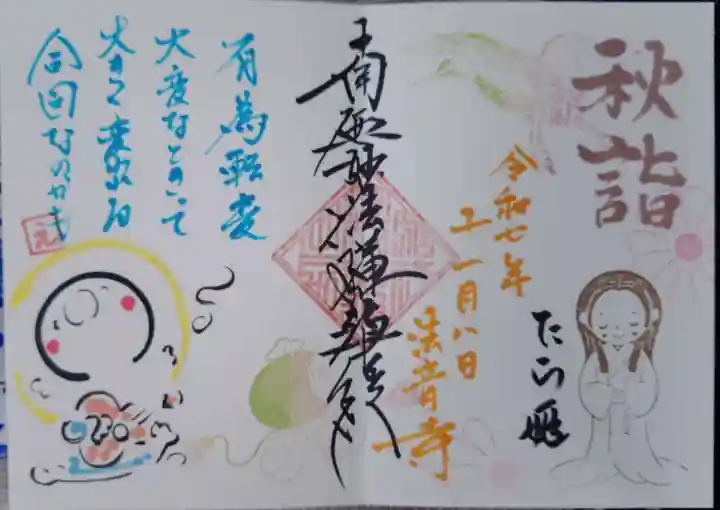 秋詣
たら姫
令和七年
十一月八日
法音寺
南無妙法蓮華経
有為転変
大変なときって
大きく変われる
合図なのかも